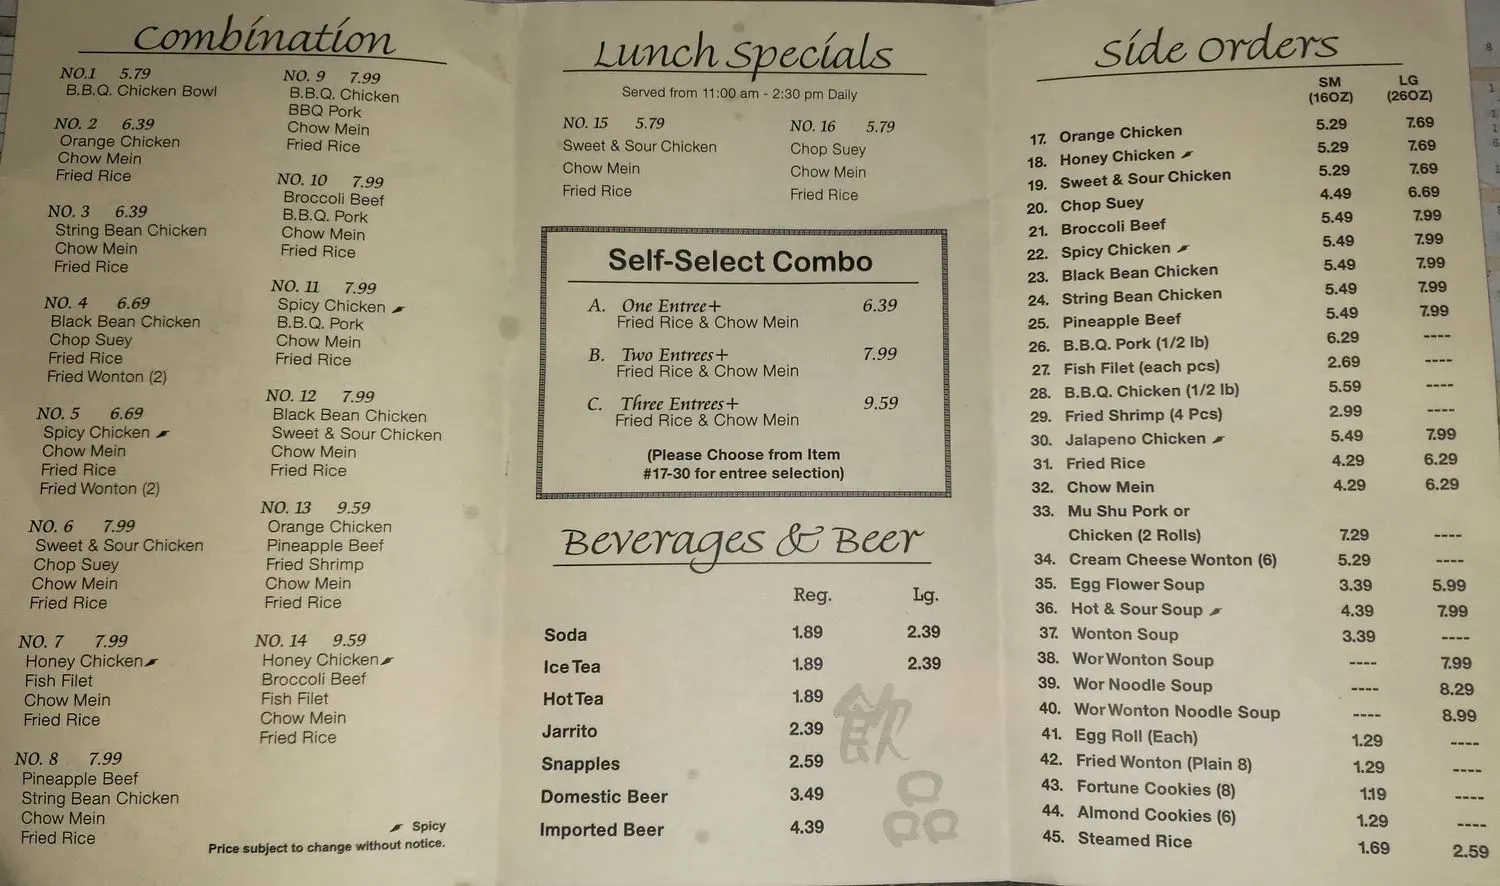 Combination
NO.1 5.79
B.B.Q. Chicken Bowl
NO. 2 6.39
Orange Chicken
Chow Mein
Fried Rice
NO. 3 6.39
String Bean Chicken
Chow Mein
Fried Rice
NO. 4 6.69
Black Bean Chicken
Chop Suey
Fried Rice
Fried Wonton (2)
NO. 5 6.69
Spicy Chicken
Chow Mein
Fried Rice
Fried Wonton (2)
NO. 6 7.99
Sweet & Sour Chicken
Chop Suey
Chow Mein
Fried Rice
NO. 7 7.99
Honey Chicken
Fish Filet
Chow Mein
Fried Rice
NO. 8 7.99
Pineapple Beef
String Bean Chicken
Chow Mein
Fried Rice
NO. 9 7.99
B.B.Q. Chicken
BBQ Pork
Chow Mein
Fried Rice
NO. 10 7.99
Broccoli Beef
B.B.Q. Pork
Chow Mein
Fried Rice
NO. 11 7.99
Spicy Chicken
B.B.Q. Pork
Chow Mein
Fried Rice
NO. 12 7.99
Black Bean Chicken
Sweet & Sour Chicken
Chow Mein
Fried Rice
NO. 13 9.59
Orange Chicken
Pineapple Beef
Fried Shrimp
Chow Mein
Fried Rice
NO. 14 9.59
Honey Chicken
Broccoli Beef
Fish Filet
Chow Mein
Fried Rice
Spicy
Price subject to change without notice.
Lunch Specials
Served from 11:00 am - 2:30 pm Daily
NO. 15 5.79
Sweet & Sour Chicken
Chow Mein
Fried Rice
NO. 16 5.79
Chop Suey
Chow Mein
Fried Rice
Self-Select Combo
A. One Entree+ 6.39
Fried Rice & Chow Mein
B. Two Entrees+ 7.99
Fried Rice & Chow Mein
C. Three Entrees+ 9.59
Fried Rice & Chow Mein
(Please Choose from Item
#17-30 for entree selection)
Beverages & Beer
Reg. Lg.
Soda 1.89 2.39
Ice Tea 1.89 2.39
Hot Tea 1.89
Jarrito 2.39
Snapples 2.59
Domestic Beer 3.49
Imported Beer 4.39
飲
品
Side Orders
SM LG
(16OZ) (26OZ)
17. Orange Chicken 5.29 7.69
18. Honey Chicken 5.29 7.69
19. Sweet & Sour Chicken 5.29 7.69
20. Chop Suey 4.49 6.69
21. Broccoli Beef 5.49 7.99
22. Spicy Chicken 5.49 7.99
23. Black Bean Chicken 5.49 7.99
24. String Bean Chicken 5.49 7.99
25. Pineapple Beef 5.49 7.99
26. B.B.Q. Pork (1/2 lb) 6.29 ----
27. Fish Filet (each pcs) 2.69 ----
28. B.B.Q. Chicken (1/2 lb) 5.59 ----
29. Fried Shrimp (4 Pcs) 2.99 ----
30. Jalapeno Chicken 5.49 7.99
31. Fried Rice 4.29 6.29
32. Chow Mein 4.29 6.29
33. Mu Shu Pork or
Chicken (2 Rolls) 7.29 ----
34. Cream Cheese Wonton (6) 5.29 ----
35. Egg Flower Soup 3.39 5.99
36. Hot & Sour Soup 4.39 7.99
37. Wonton Soup 3.39 ----
38. Wor Wonton Soup ---- 7.99
39. Wor Noodle Soup ---- 8.29
40. Wor Wonton Noodle Soup ---- 8.99
41. Egg Roll (Each) 1.29 ----
42. Fried Wonton (Plain 8) 1.29 ----
43. Fortune Cookies (8) 1.19 ----
44. Almond Cookies (6) 1.29 ----
45. Steamed Rice 1.69 2.59